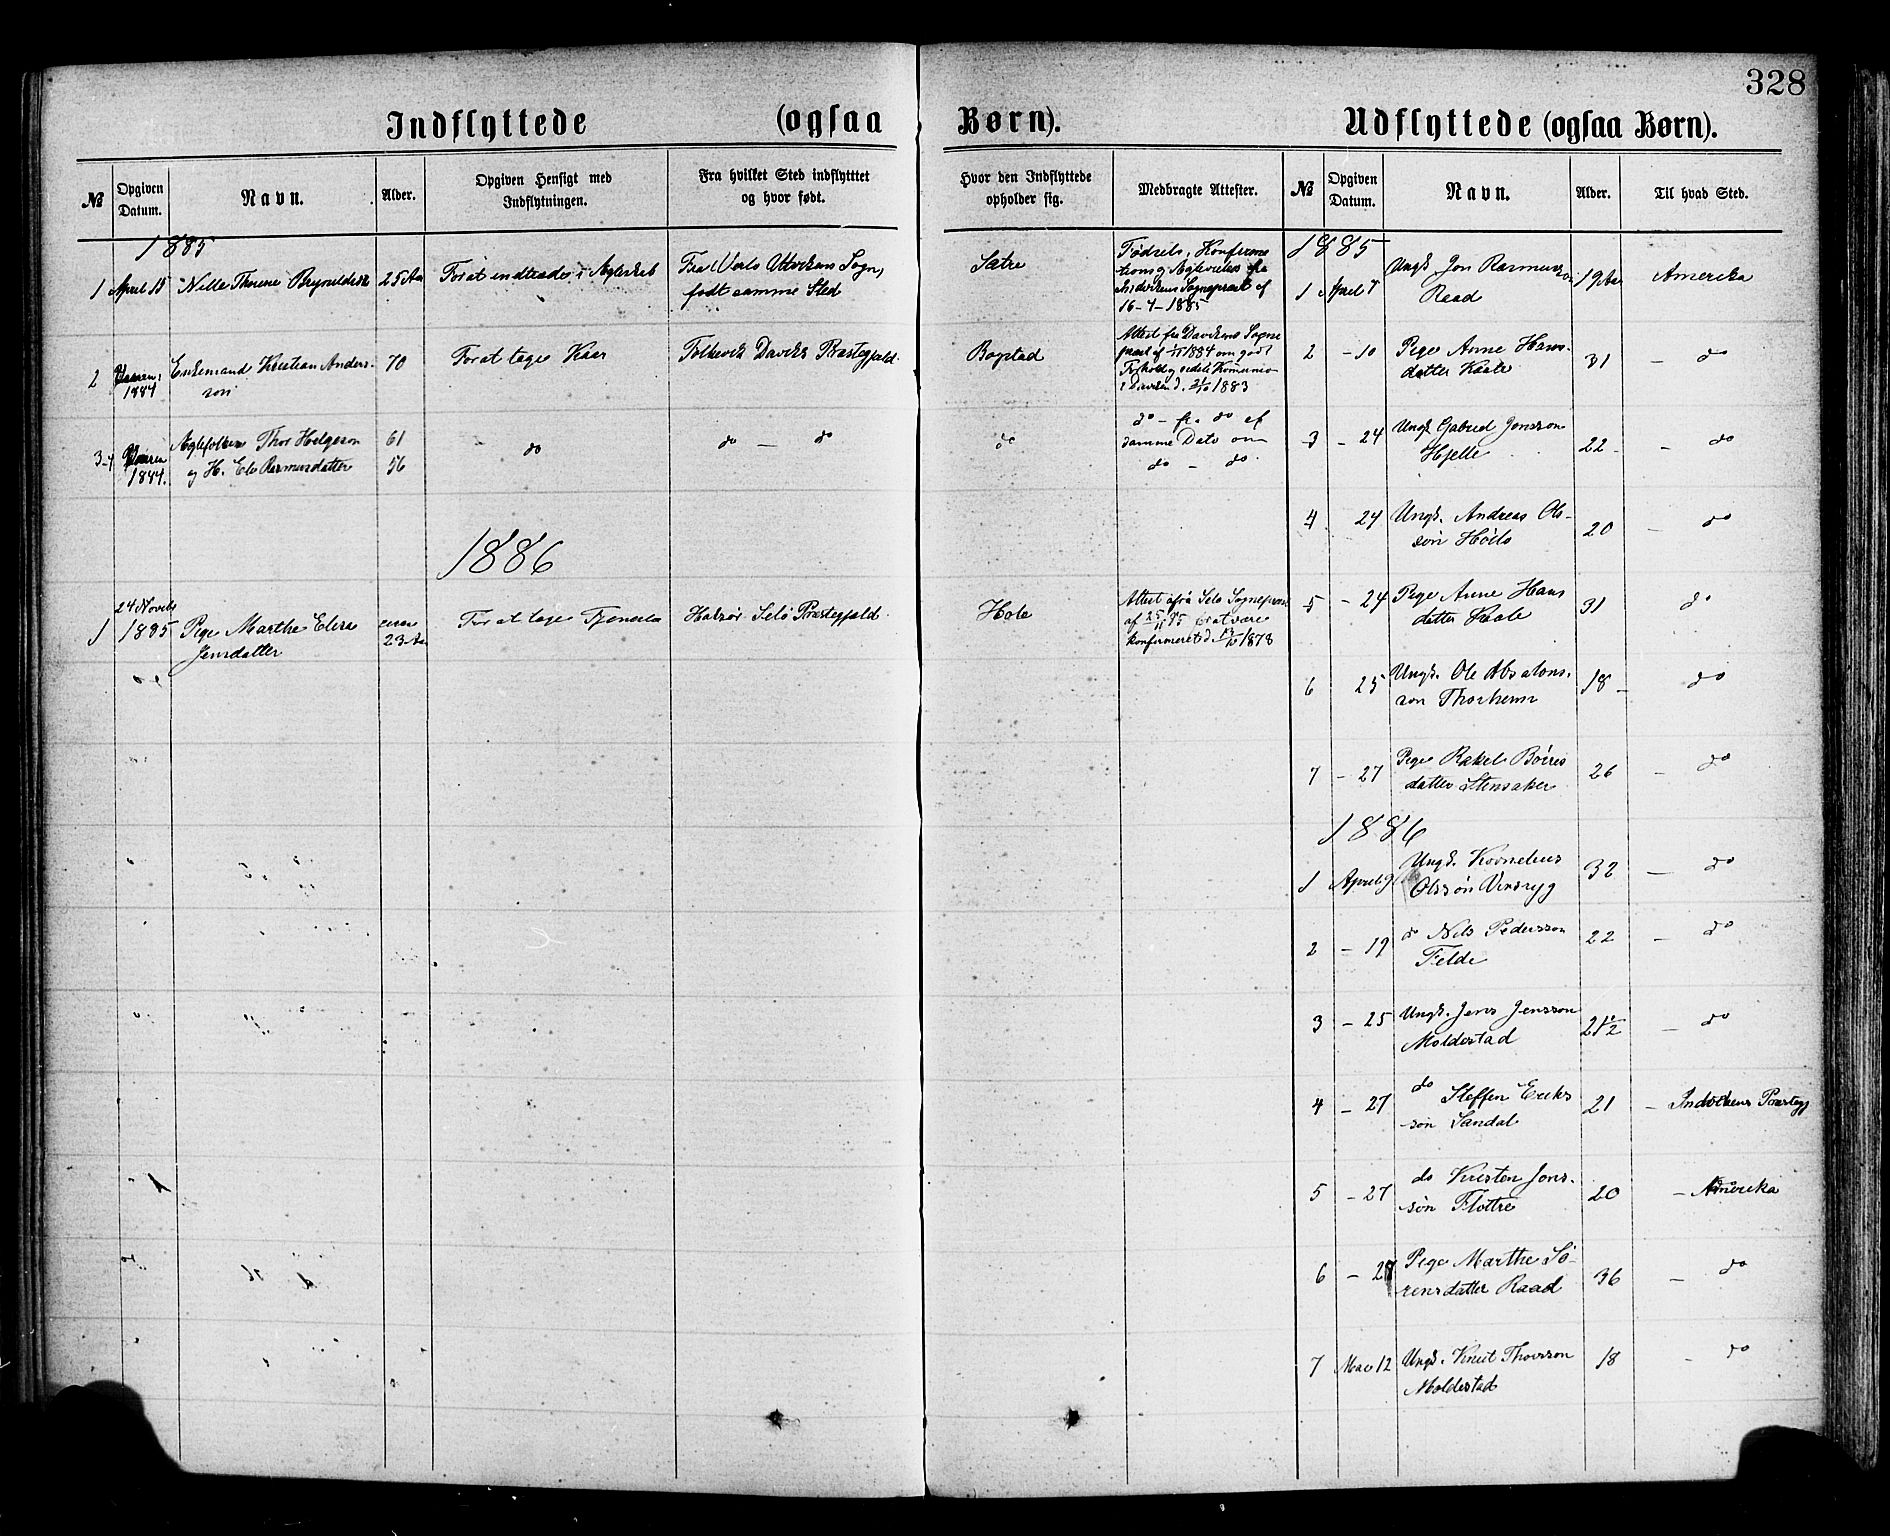 328
Indflyttede (ogsaa Børn).
Udflyttede (ogsaa Børn).
№
Opgiven Datum.
Navn.
Alder.
Opgiven Hensigt med Indflytningen.
Fra hvilket Sted indflytttet og hvor født.
Hvor den Indflyttede opholder sig.
Medbragte Attester.
№
Opgiven Datum.
Navn.
Alder.
Til hvad Sted.
1885
1 April 18 Nille Therene Brynildsd. 25 Aar For at indtræde i Ægteskab Fra Utvikens Sogn, Sætre Fødsels, Konfirma
født samme Sted
tions og fra
Indvikens Sognepræst af
16-4-1885
2 Vaaren 1884 Enkemand Kristian Anders- 70 For at tage Kaar Daviks Præstegjeld. Bogstad Attest fra Davikens Sogne
søn
præst af 1884 om godt
Forhold og sidste
1883
3-4 Vaaren 1884. Ægtefolkene Thor Helgeson 61 do do — do do do — fr. do af
og H. Rasmusdatter 56
samme Dato om
do — do
1886
1 24 Novb 1885 Pige Marthe Jensdatter 23 Aar For at tage Tjeneste Selø Præstegjeld. Hole Attest fra Selø Sognepræst
af 25/11 85 for at være
konfirmeret d. 1878
1885
1 April 7 Ungk. Jon Rasmusson Raad 19 Aar Amerika
2 – 10 Pige Anne Hans-
datter Kaale 31 – do
3 – 24 Ungk Gabriel Jonsson
Hjelle 22 – do
4 24 Ungk. Andreas Ols-
søn 20 – do
5 – 24 Pige Anne Hans
datter 31 do
6 25 Ungk. Ole Absalons-
søn Thorheim 18 – do
7 – 27 Pige Rakel
datter Stensaker 26 – do
1886
1 April 9 Ungk. Kornelius
Olssøn Vinsryg 32 – do
2 – 19 do Nils Pedersson
Felde 22 – do
3 – 25 Ungk. Jens Jensson
Moldestad 21½ – do
4 – 27 do Steffen Eriks
søn Sandal 21 – Indvikens Præstegj
5 – 27 do Kristen Jons-
søn Flottre 20 – Amerika
6 – 27 Pige Marthe Sø-
rensdatter Raad 36 – do
7 Mai 12 Ungk. Knut Thorsson
Moldestad 18 – do